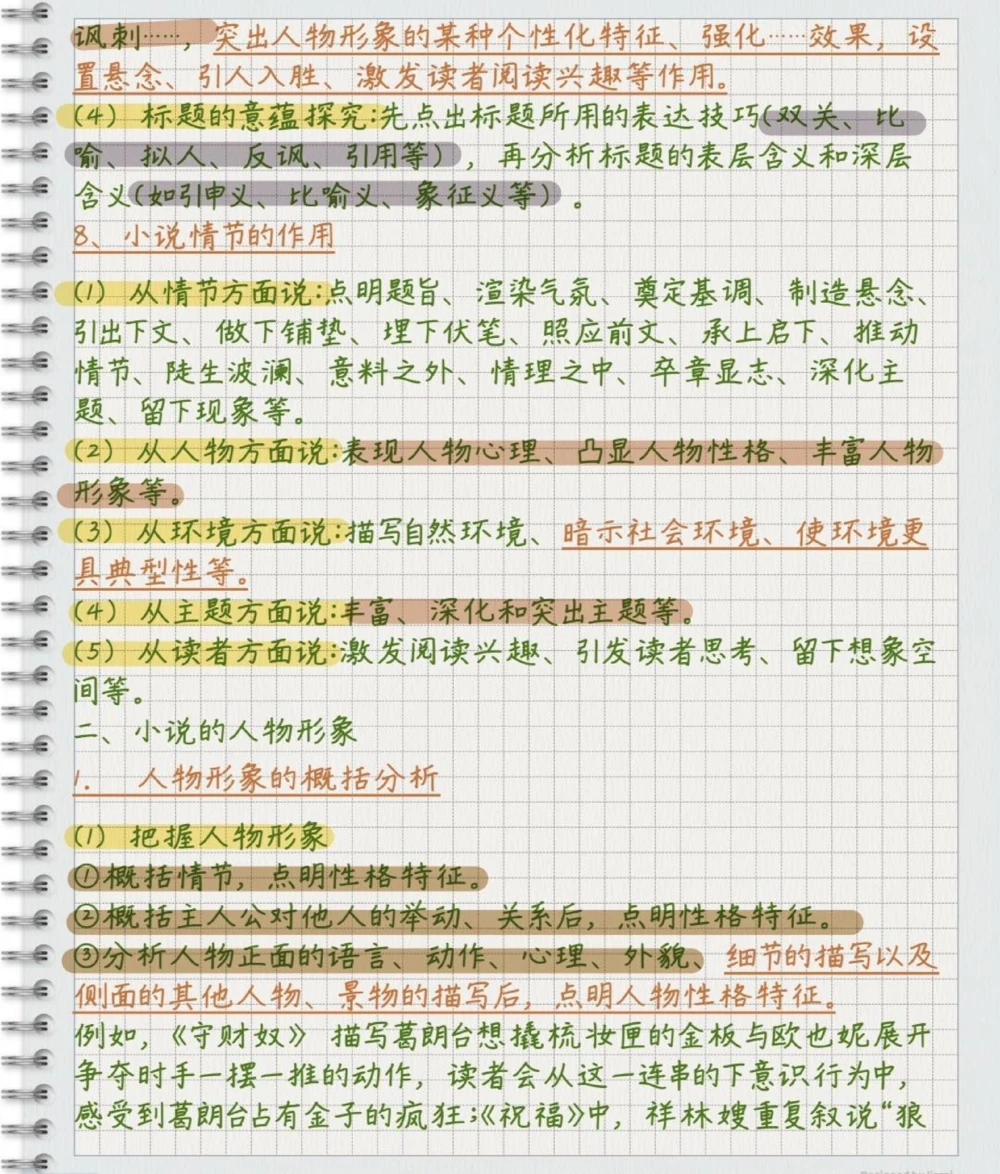 讽刺……，突出人物形象的某种个性化特征、强化……效果，设
置悬念、引人入胜、激发读者阅读兴趣等作用。
(4) 标题的意蕴探究:先点出标题所用的表达技巧(双关、比
喻、拟人、反讽、引用等)，再分析标题的表层含义和深层
含义(如引申义、比喻义、象征义等)。
8、小说情节的作用
(1) 从情节方面说:点明题旨、渲染气氛、奠定基调、制造悬念、
引出下文、做下铺垫、埋下伏笔、照应前文、承上启下、推动
情节、陡生波澜、意料之外、情理之中、卒章显志、深化主
题、留下现象等。
(2) 从人物方面说:表现人物心理、凸显人物性格、丰富人物
形象等。
(3) 从环境方面说:描写自然环境、暗示社会环境、使环境更
具典型性等。
(4) 从主题方面说:丰富、深化和突出主题等。
(5) 从读者方面说:激发阅读兴趣、引发读者思考、留下想象空
间等。
二、小说的人物形象
1. 人物形象的概括分析
(1) 把握人物形象
①概括情节，点明性格特征。
②概括主人公对他人的举动、关系后，点明性格特征。
③分析人物正面的语言、动作、心理、外貌、细节的描写以及
侧面的其他人物、景物的描写后，点明人物性格特征。
例如，《守财奴》 描写葛朗台想撬梳妆匣的金板与欧也妮展开
争夺时手一摆一推的动作，读者会从这一连串的下意识行为中，
感受到葛朗台占有金子的疯狂;《祝福》中，祥林嫂重复叙说“狼